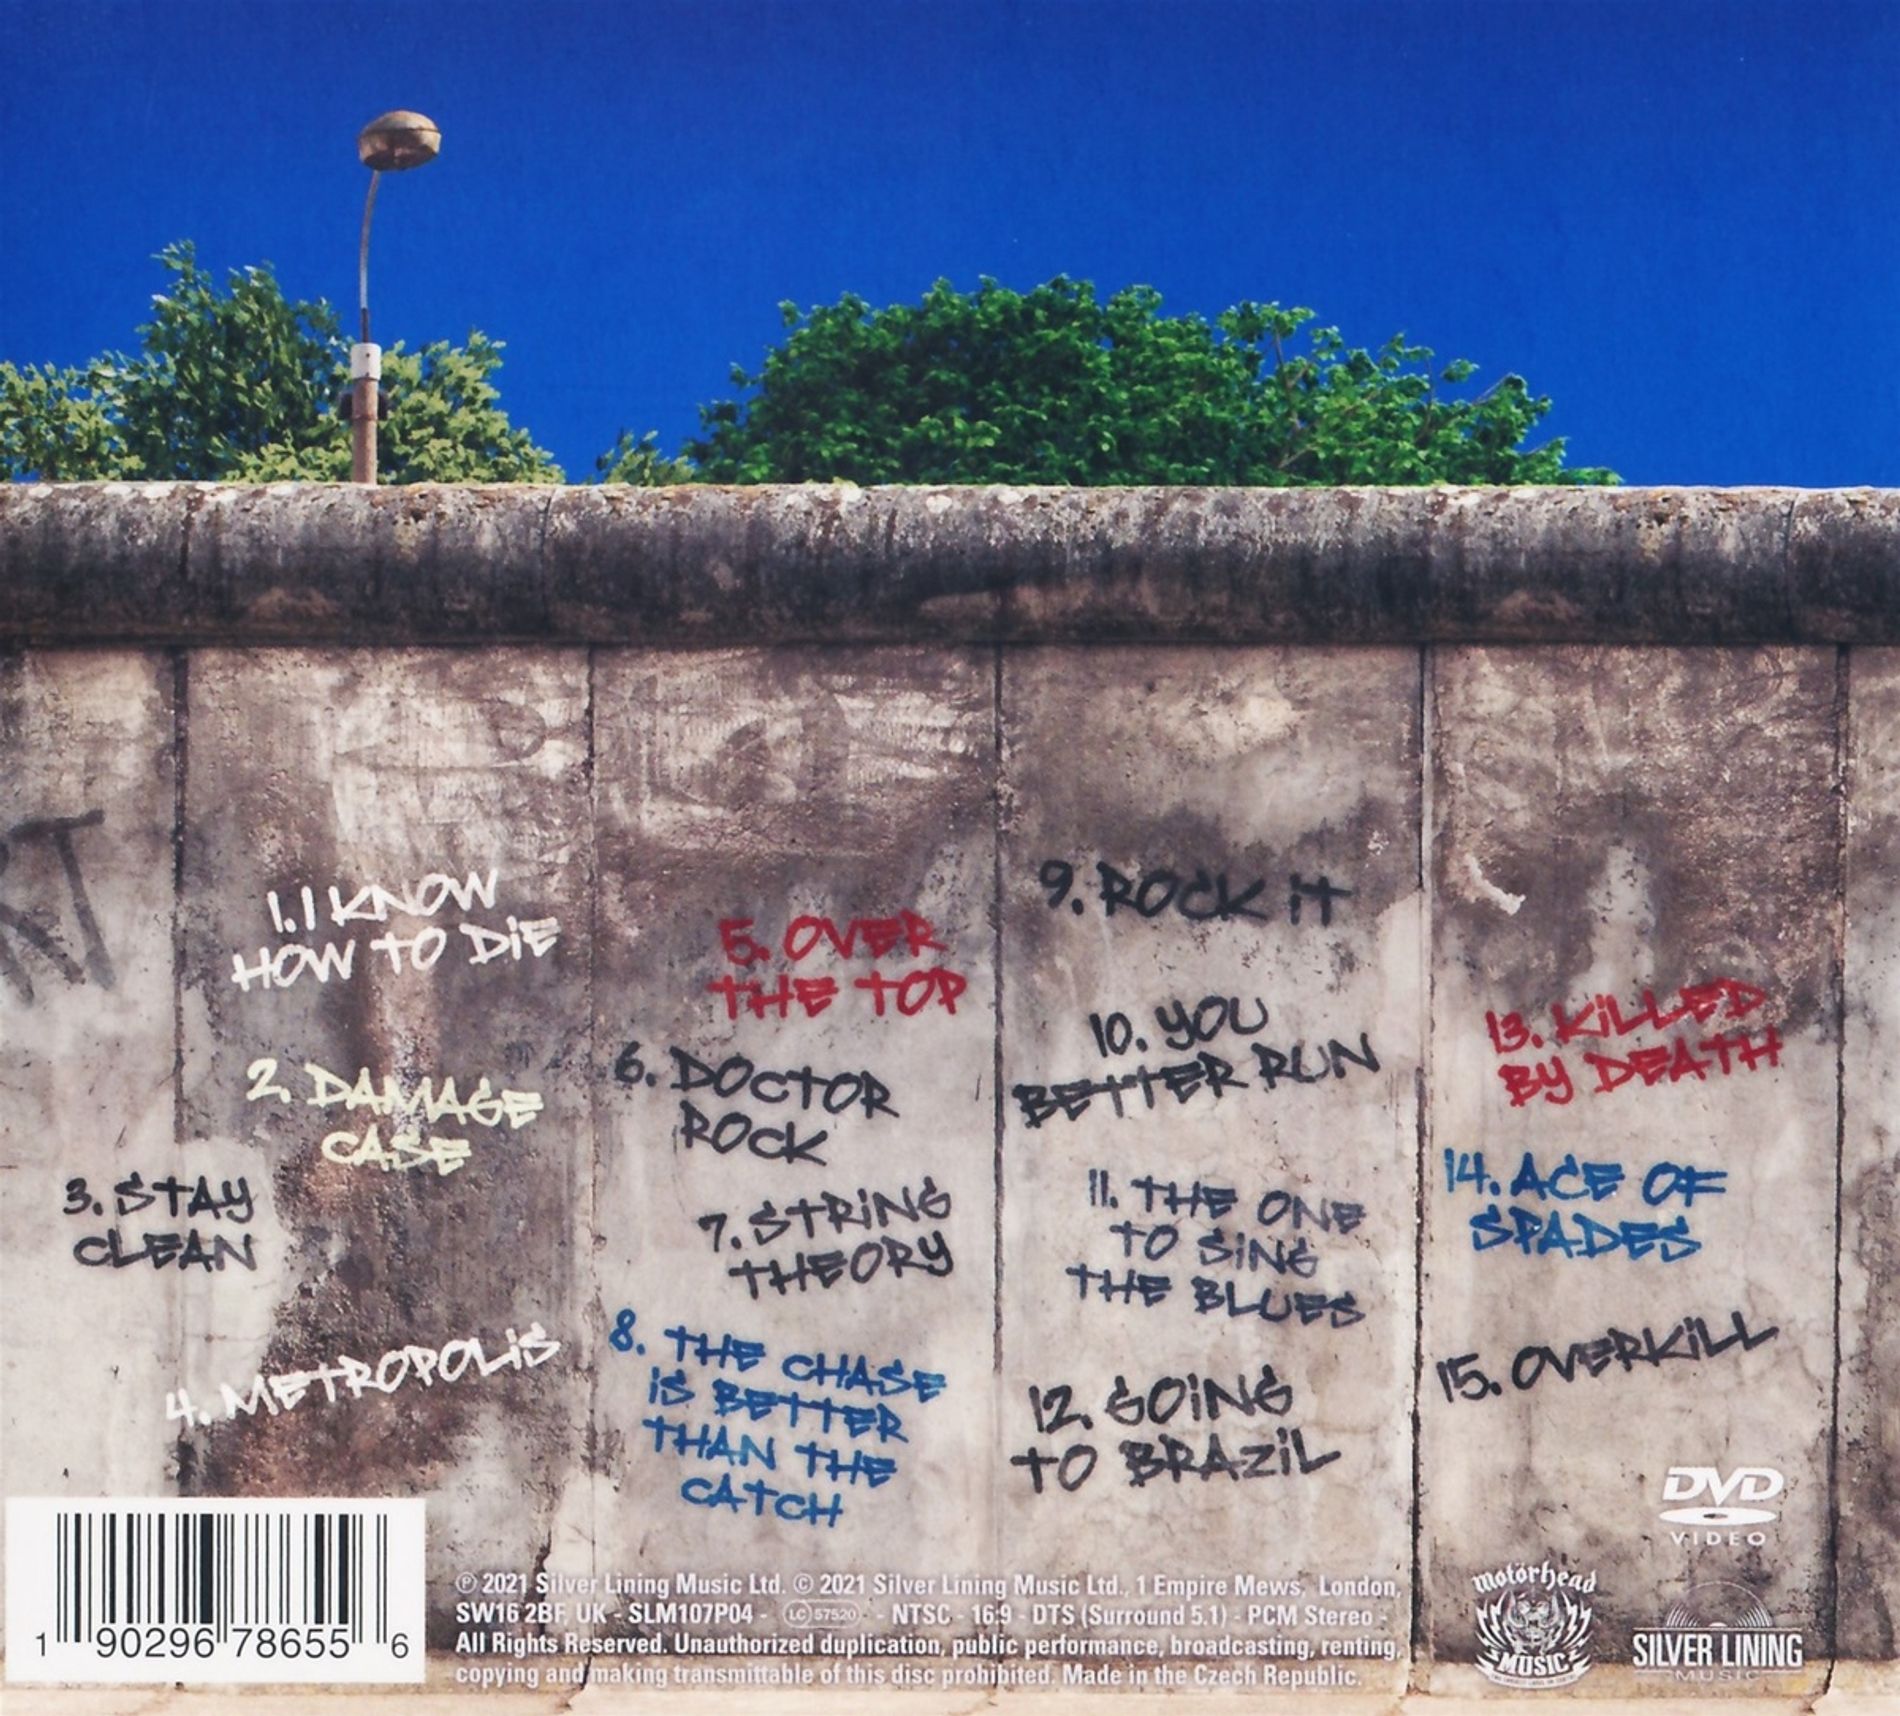 RT
1. I KNOW
HOW TO DIE
2. DAMAGE
CASE
3. STAY
CLEAN
4. METROPOLIS
5. OVER
THE TOP
6. DOCTOR
ROCK
7. STRING
THEORY
8. THE CHASE
IS BETTER
THAN THE
CATCH
9. ROCK IT
10. YOU
BETTER RUN
11. THE ONE
TO SING
THE BLUES
12. GOING
TO BRAZIL
13. KILLED
BY DEATH
14. ACE OF
SPADES
15. OVERKILL
DVD
VIDEO
1 90296 78655 6
℗ 2021 Silver Lining Music Ltd. © 2021 Silver Lining Music Ltd., 1 Empire Mews, London,
SW16 2BF, UK - SLM107P04 - LC 57520 - NTSC - 16:9 - DTS (Surround 5.1) - PCM Stereo -
All Rights Reserved. Unauthorized duplication, public performance, broadcasting, renting,
copying and making transmittable of this disc prohibited. Made in the Czech Republic.
motörhead
MUSIC
SILVER LINING
MUSIC